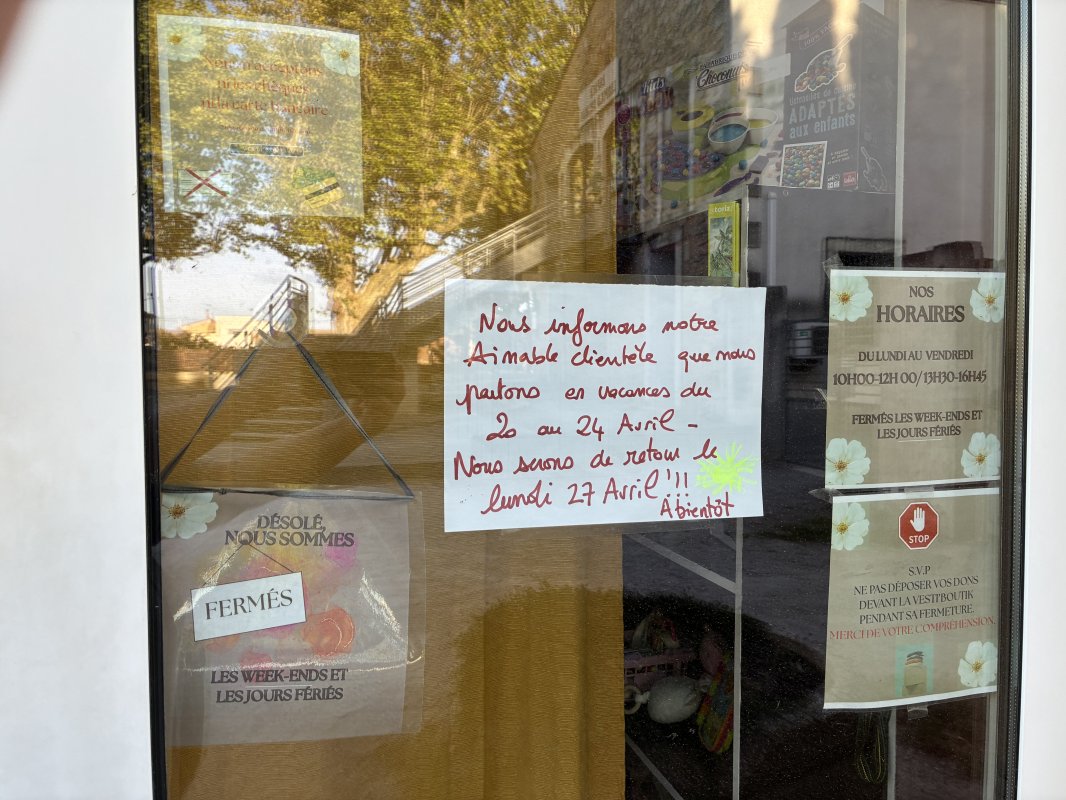 Nous n'acceptons
ni les chèques
ni la carte bancaire
Choconuts
Ustensiles de cuisine
ADAPTÉS
aux enfants
Nous informons notre
Aimable clientèle que nous
partons en vacances du
20 au 24 Avril -
Nous serons de retour le
lundi 27 Avril !!!
À bientôt
NOS
HORAIRES
DU LUNDI AU VENDREDI
10H00-12H 00/13H30-16H45
FERMÉS LES WEEK-ENDS ET
LES JOURS FÉRIÉS
DÉSOLÉ,
NOUS SOMMES
FERMÉS
LES WEEK-ENDS ET
LES JOURS FÉRIÉS
STOP
S.V.P
NE PAS DÉPOSER VOS DONS
DEVANT LA VESTI'BOUTIK
PENDANT SA FERMETURE.
MERCI DE VOTRE COMPRÉHENSION.